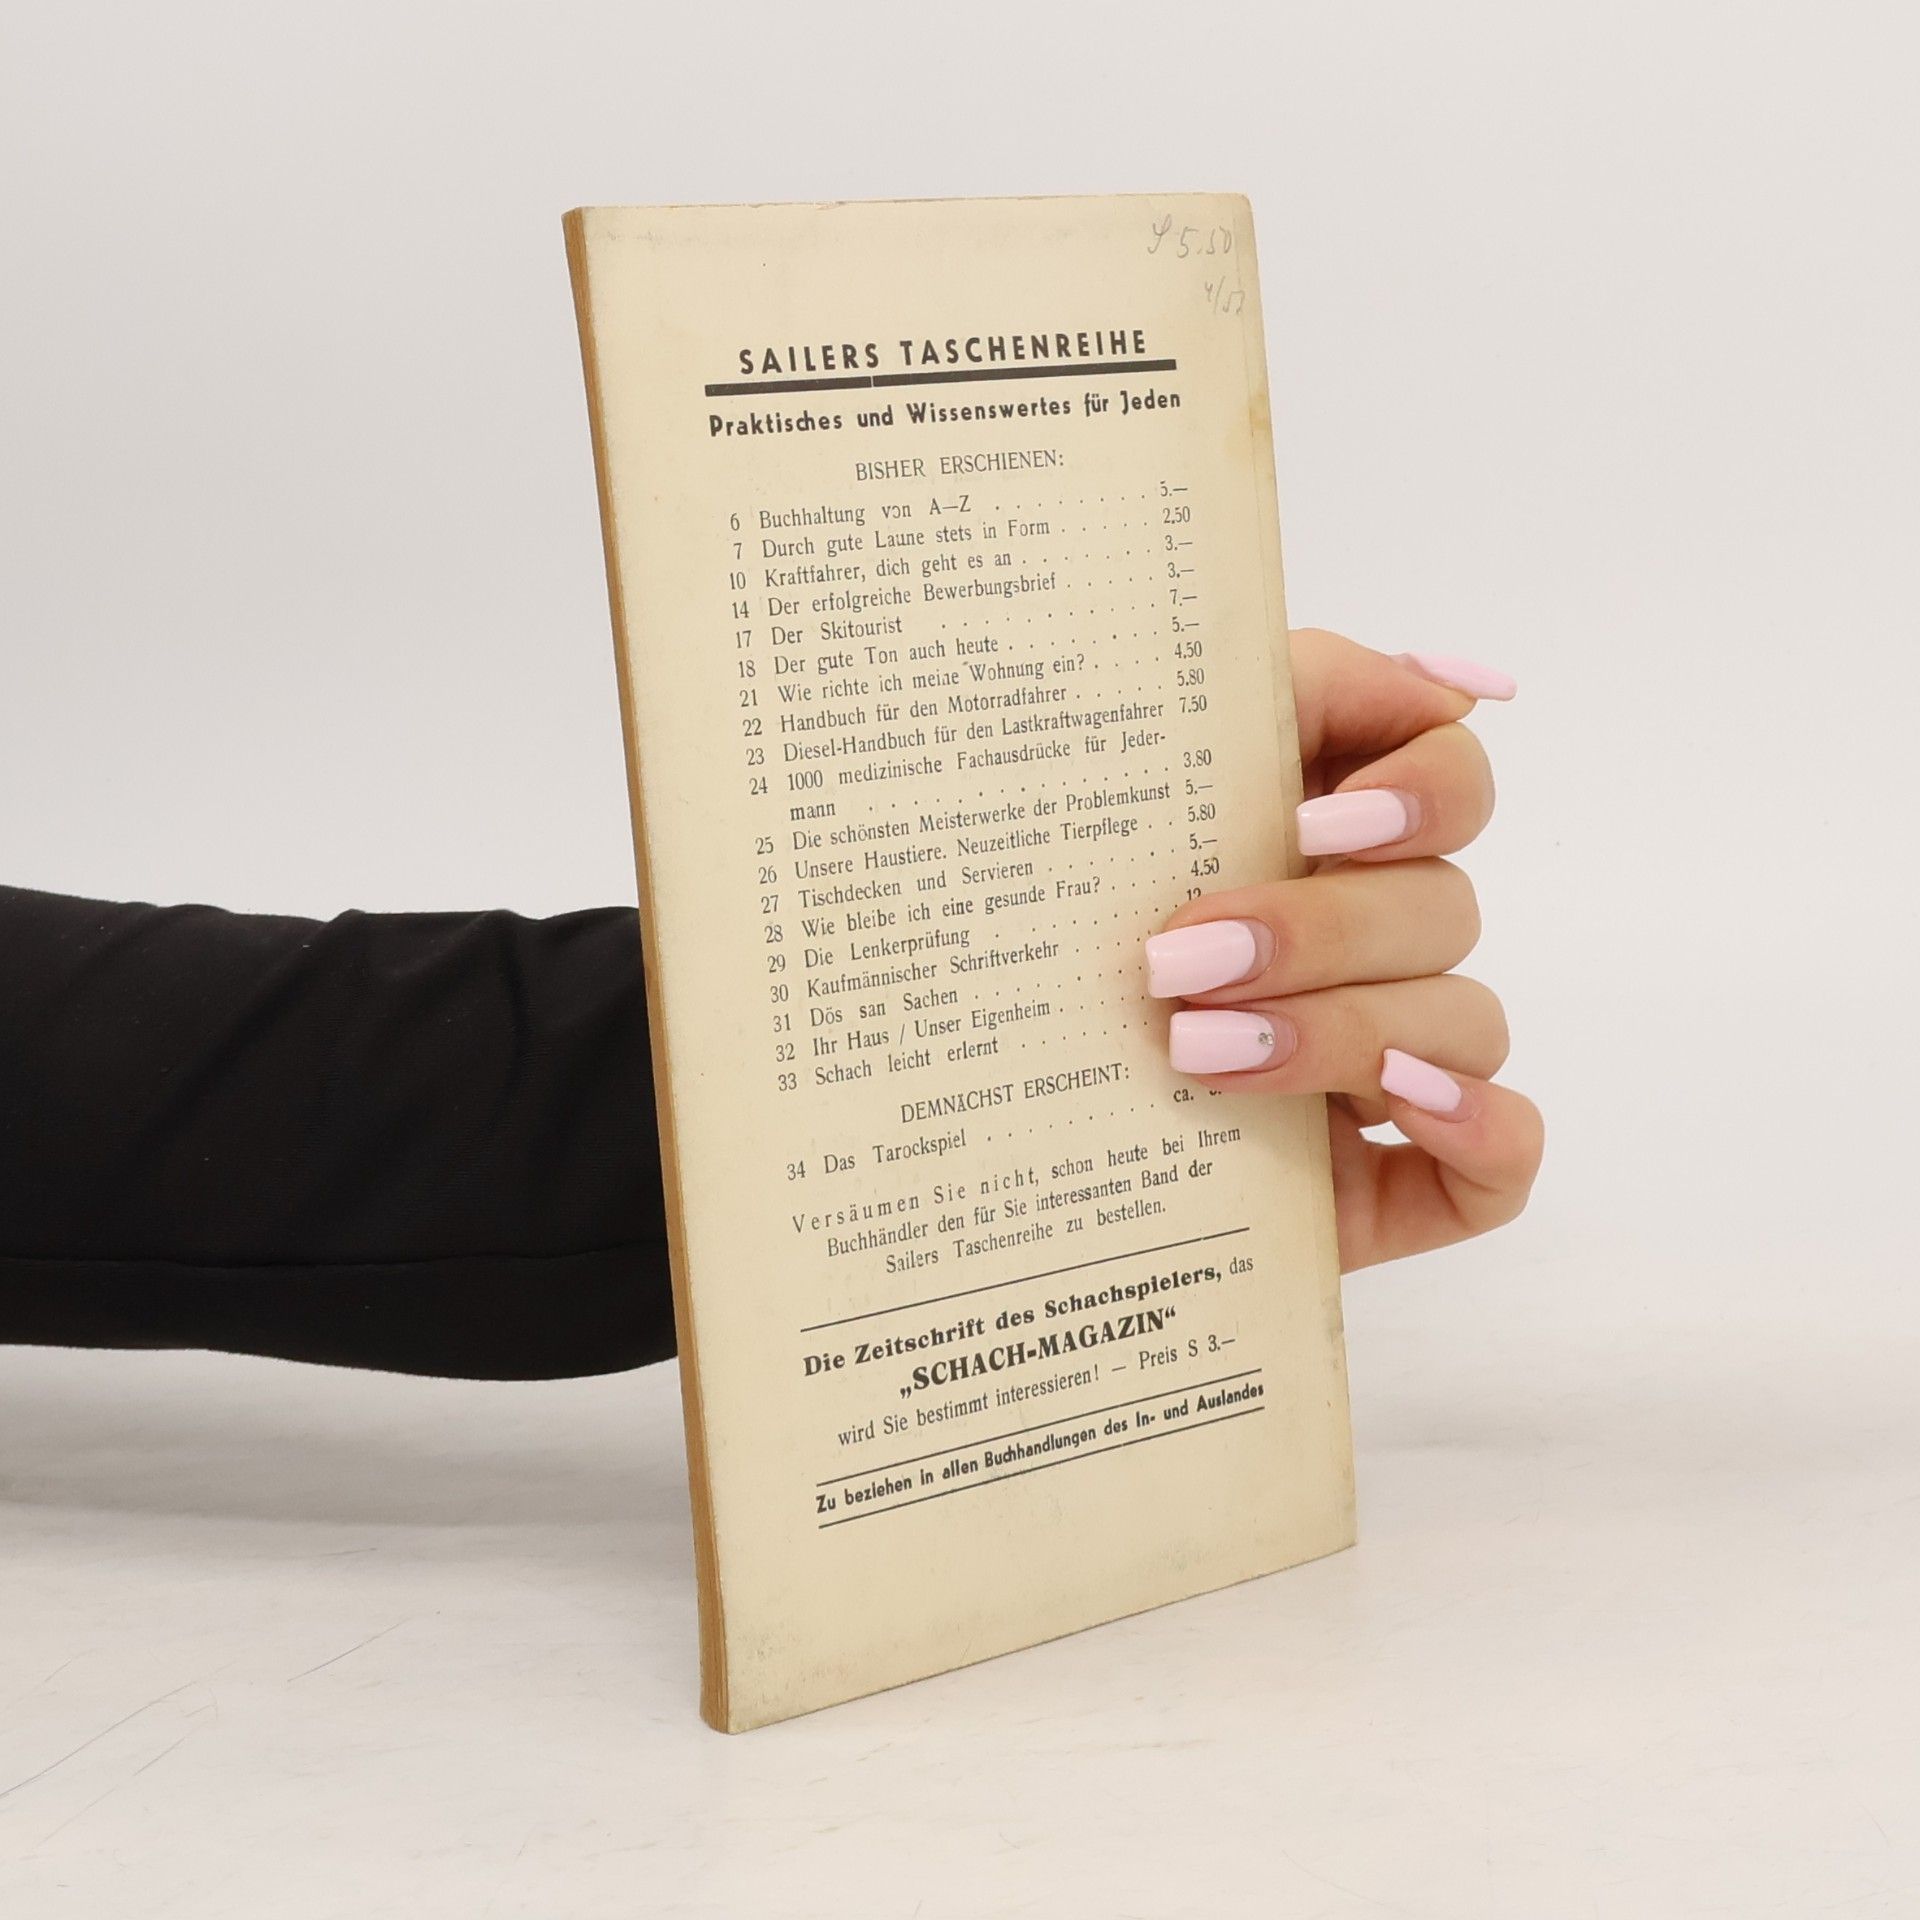 S 5.50
SAILERS TASCHENREIHE
Praktisches und Wissenswertes für Jeden
BISHER ERSCHIENEN:
6 Buchhaltung von A—Z . . . . . . . . 5.—
7 Durch gute Laune stets in Form . . . . . 2.50
10 Kraftfahrer, dich geht es an . . . . . . . 3.—
14 Der erfolgreiche Bewerbungsbrief . . . . . 3.—
17 Der Skitourist . . . . . . . . . . 7.—
18 Der gute Ton auch heute . . . . . . . . 5.—
21 Wie richte ich meine Wohnung ein? . . . . 4.50
22 Handbuch für den Motorradfahrer . . . . . 5.80
23 Diesel-Handbuch für den Lastkraftwagenfahrer 7.50
24 1000 medizinische Fachausdrücke für Jeder-
mann . . . . . . . . . . . . 3.80
25 Die schönsten Meisterwerke der Problemkunst 5.—
26 Unsere Haustiere. Neuzeitliche Tierpflege . . 5.80
27 Tischdecken und Servieren . . . . . . . 5.—
28 Wie bleibe ich eine gesunde Frau? . . . . 4.50
29 Die Lenkerprüfung . . . . . . . . 12
30 Kaufmännischer Schriftverkehr . . . .
31 Dös san Sachen . . . . . . . .
32 Ihr Haus / Unser Eigenheim . . . . .
33 Schach leicht erlernt . . . . . . .
DEMNÄCHST ERSCHEINT:
34 Das Tarockspiel . . . . . . . . ca.
Versäumen Sie nicht, schon heute bei Ihrem
Buchhändler den für Sie interessanten Band der
Sailers Taschenreihe zu bestellen.
Die Zeitschrift des Schachspielers, das
„SCHACH-MAGAZIN“
wird Sie bestimmt interessieren! — Preis S 3.—
Zu beziehen in allen Buchhandlungen des In- und Auslandes